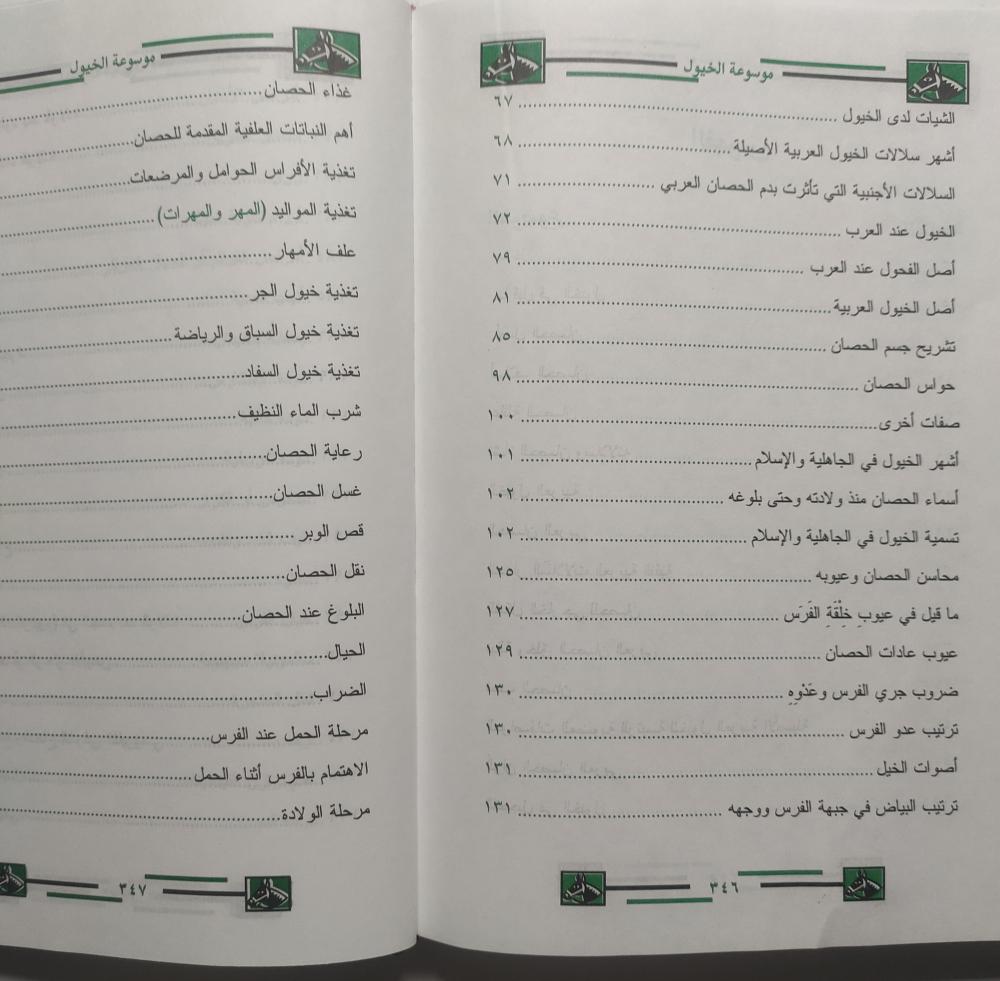 موسوعة الخيول
الشيات لدى الخيول ........ ٦٧
أشهر سلالات الخيول العربية الأصيلة ........ ٦٨
السلالات الأجنبية التي تأثرت بدم الحصان العربي ........ ٧١
الخيول عند العرب ........ ٧٢
أصل الفحول عند العرب ........ ٧٩
أصل الخيول العربية ........ ٨١
تشريح جسم الحصان ........ ٨٥
حواس الحصان ........ ٩٨
صفات أخرى ........ ١٠٠
أشهر الخيول في الجاهلية والإسلام ........ ١٠١
أسماء الحصان منذ ولادته وحتى بلوغه ........ ١٠٢
تسمية الخيول في الجاهلية والإسلام ........ ١٠٢
محاسن الحصان وعيوبه ........ ١٢٥
ما قيل في عيوبِ خِلْقَةِ الفَرَس ........ ١٢٧
عيوب عادات الحصان ........ ١٢٩
ضروب جري الفرس وعَدْوِهِ ........ ١٣٠
ترتيب عدو الفرس ........ ١٣٠
أصوات الخيل ........ ١٣١
ترتيب البياض في جبهة الفرس ووجهه ........ ١٣١
٣٤٦
موسوعة الخيول
غذاء الحصان ........
أهم النباتات العلفية المقدمة للحصان ........
تغذية الأفراس الحوامل والمرضعات ........
تغذية المواليد (المهر والمهرات) ........
علف الأمهار ........
تغذية خيول الجر ........
تغذية خيول السباق والرياضة ........
تغذية خيول السفاد ........
شرب الماء النظيف ........
رعاية الحصان ........
غسل الحصان ........
قص الوبر ........
نقل الحصان ........
البلوغ عند الحصان ........
الحيال ........
الضراب ........
مرحلة الحمل عند الفرس ........
الاهتمام بالفرس أثناء الحمل ........
مرحلة الولادة ........
٣٤٧